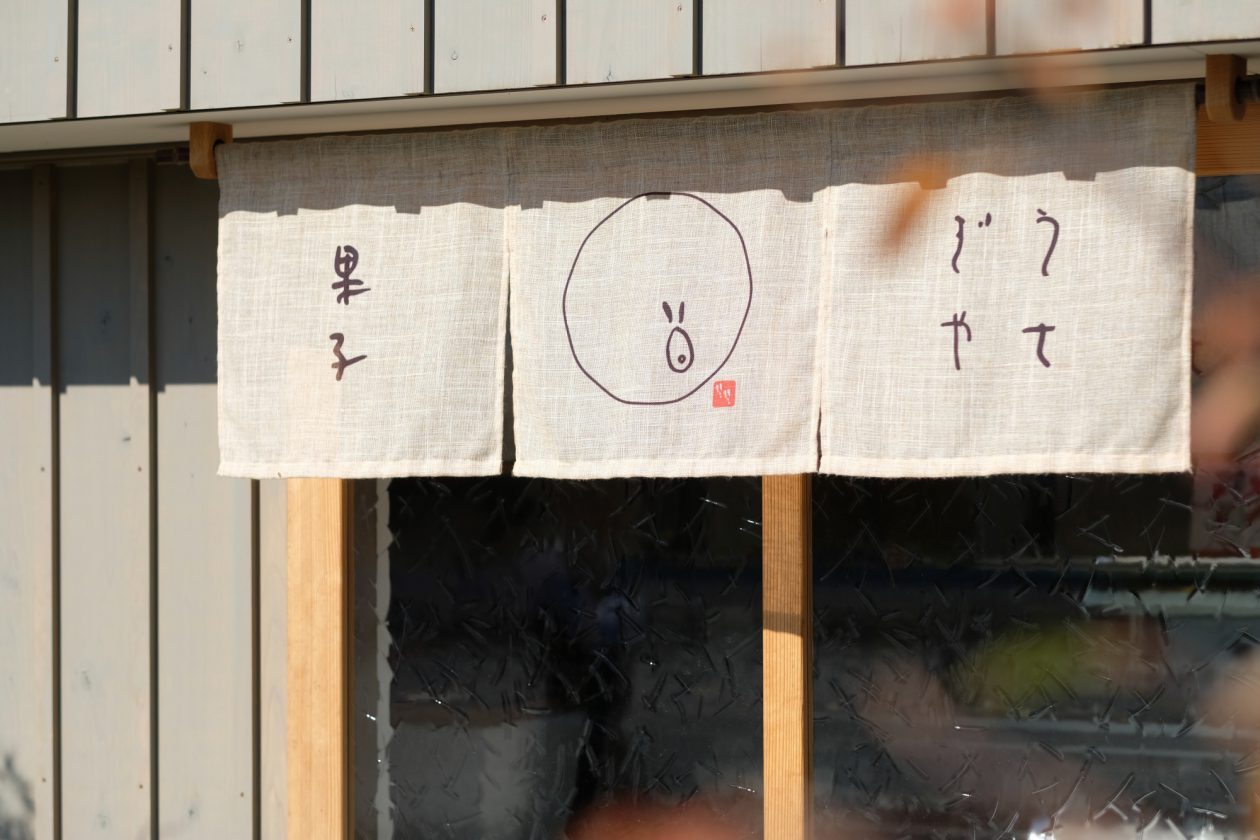 うさ
ぎや
果子